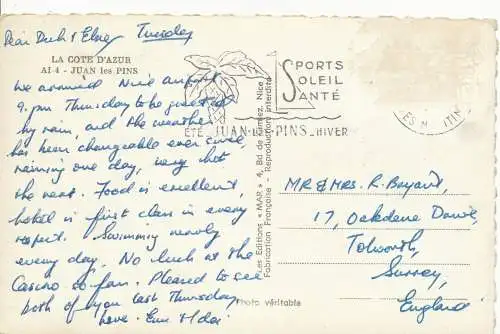 Dear Dick & Elsey Tuesday
LA COTE D'AZUR
A1-4 - JUAN les PINS
We arrived Nice airport
9. pm Thursday to be greeted
by rain, and the weather
has been changeable ever since,
raining one day, very hot
the next. Food is excellent,
hotel is first class in every
respect. Swimming nearly
every day. No luck at the
Casino so far. Pleased to see
both of you last Thursday,
love.
SPORTS
SOLEIL
SANTÉ
ÉTÉ JUAN-LES-PINS HIVER
Les Editions « MAR » 4, Bd de Nice
Fabrication Française - Reproduction interdite
Photo véritable
MR & MRS. R. Bryant,
17, Oakdene Drive,
Tolworth,
Surrey,
England